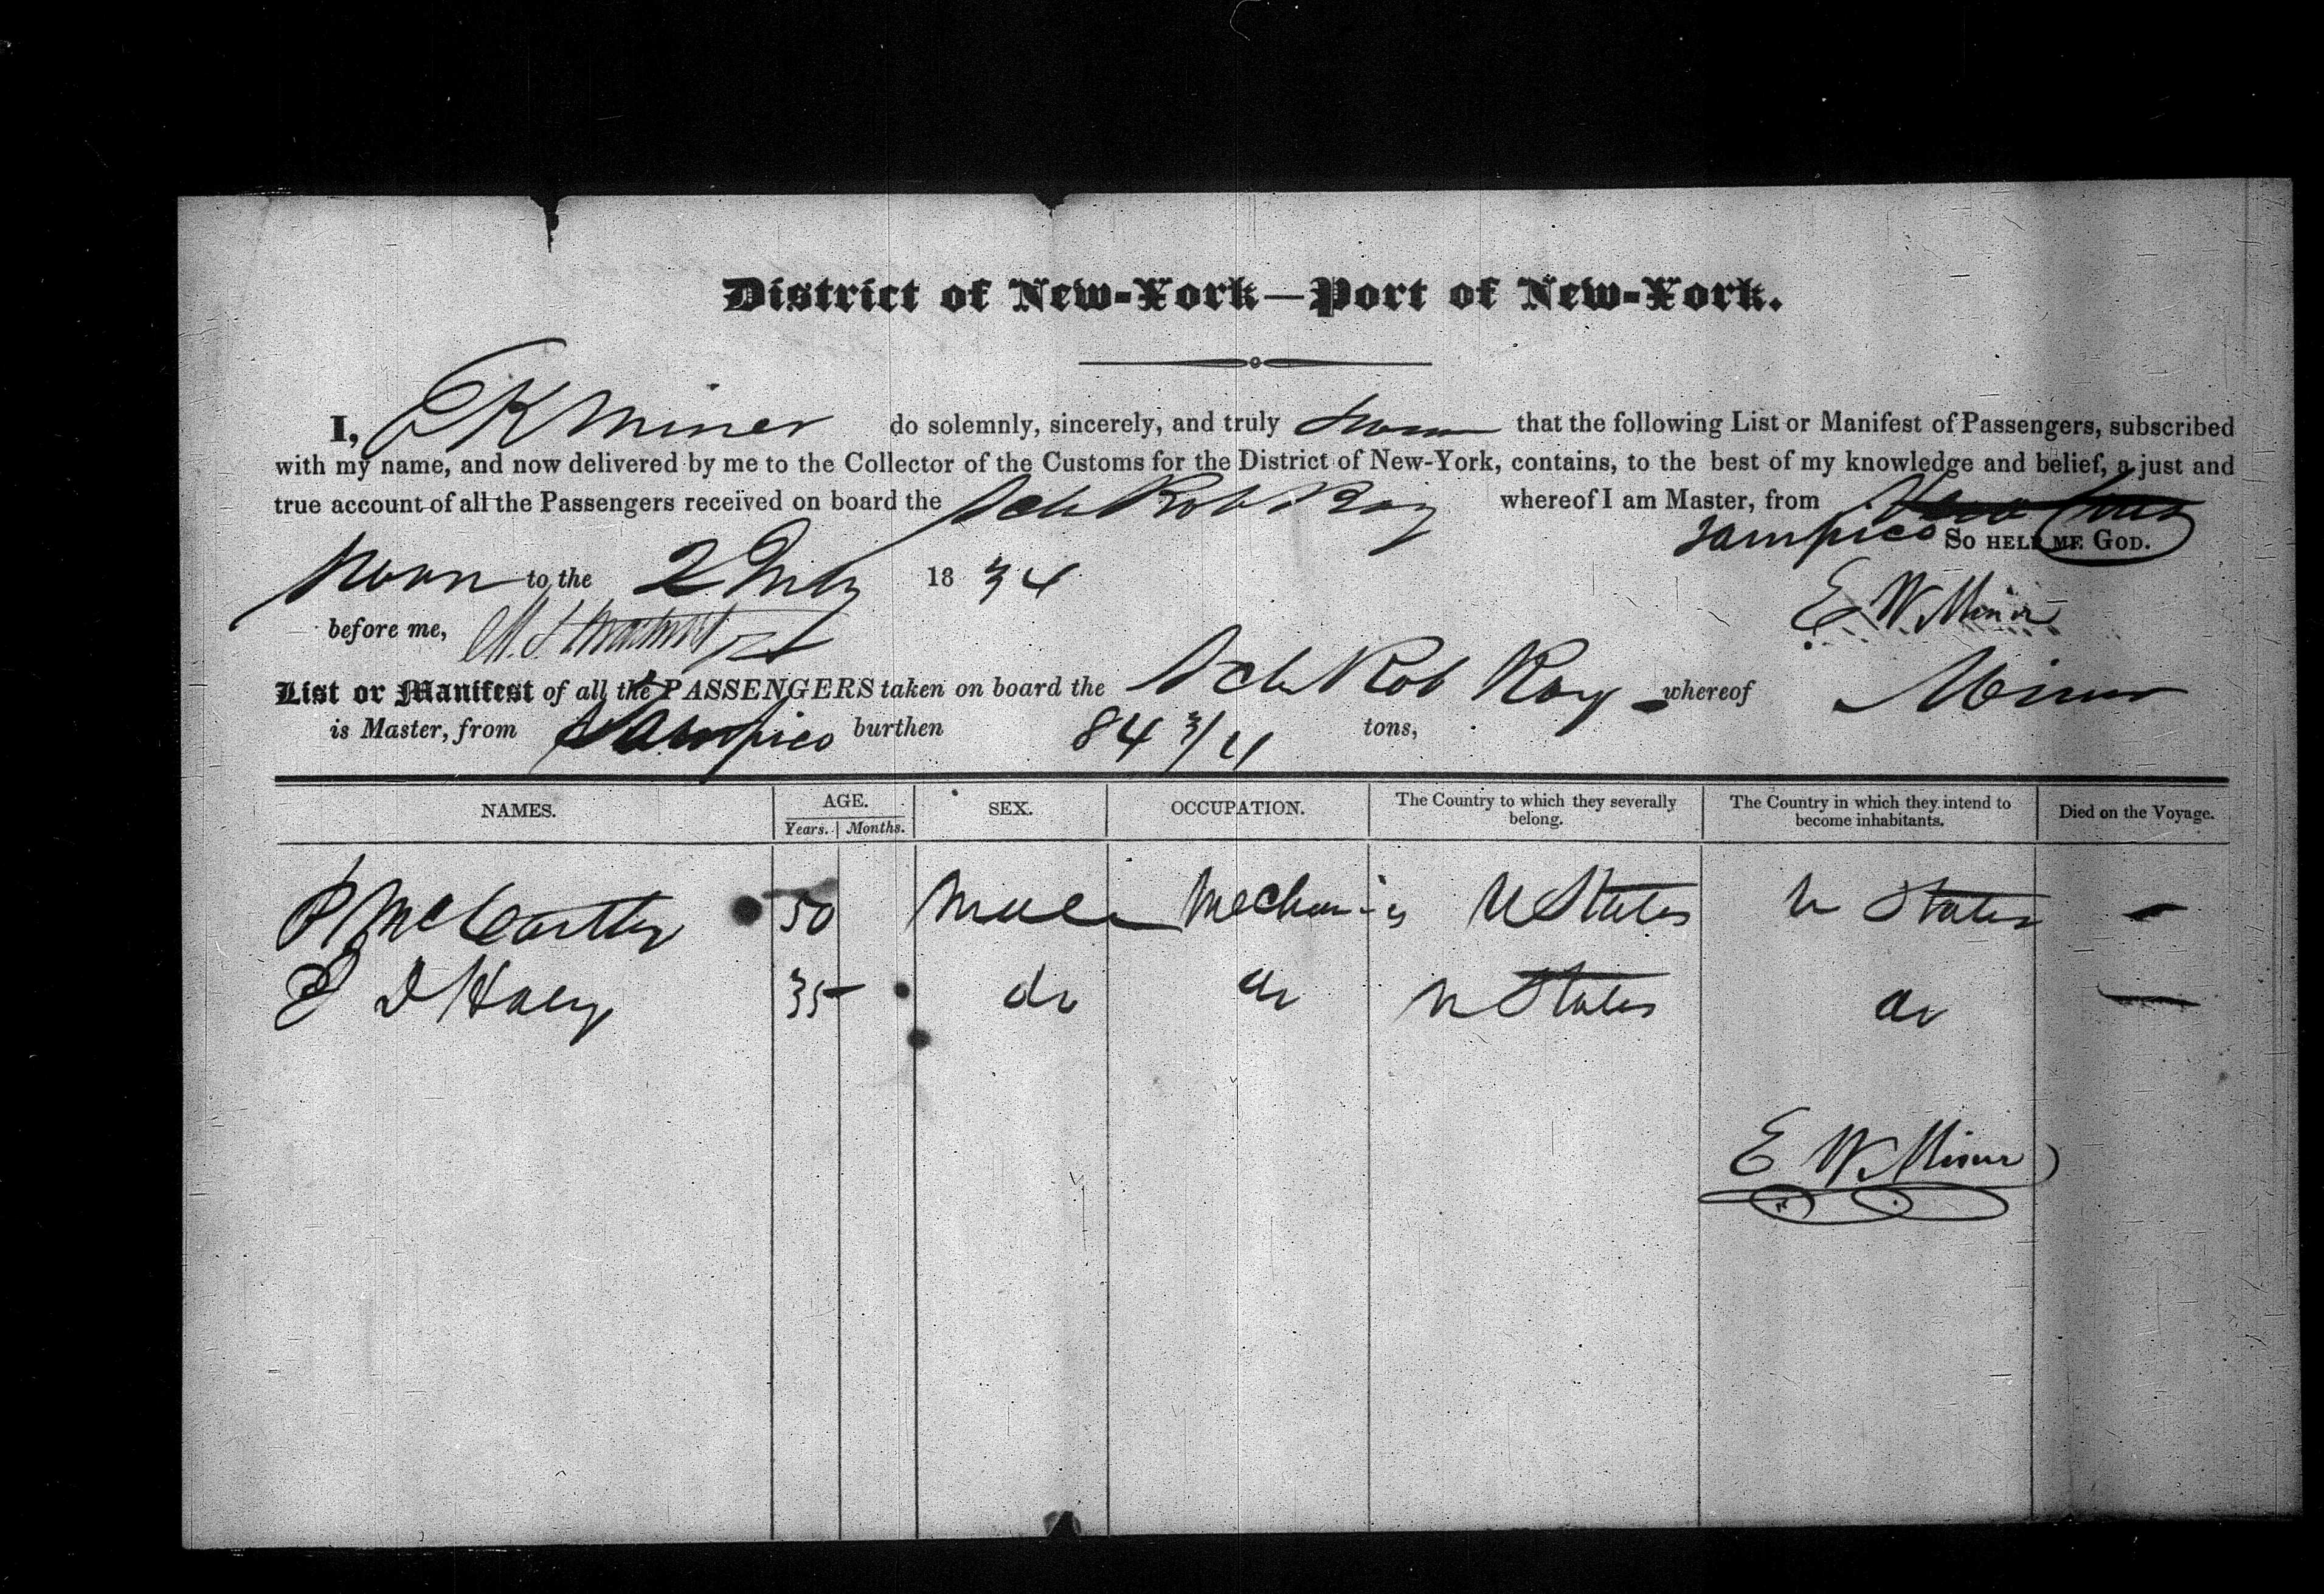 District of New-York—Port of New-York.
I, E K Miner do solemnly, sincerely, and truly swear that the following List or Manifest of Passengers, subscribed
with my name, and now delivered by me to the Collector of the Customs for the District of New-York, contains, to the best of my knowledge and belief, a just and
true account of all the Passengers received on board the Sch Rob Roy whereof I am Master, from
Tampico So help me God.
to the 2 July 1834
E W Miner
before me,
List or Manifest of all the PASSENGERS taken on board the Sch Rob Roy whereof Miner
is Master, from Tampico burthen 84 3/4 tons,
NAMES. AGE. SEX. OCCUPATION. The Country to which they severally belong. The Country in which they intend to become inhabitants. Died on the Voyage.
Years. Months.
P McCarthy 50 Male Mechanic U States U States -
D Haly 35 do do U States do —
E W Miner